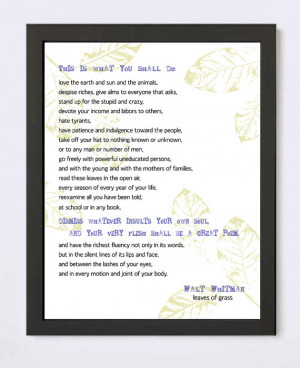 This Is what You Shall Do:
love the earth and sun and the animals,
despise riches, give alms to everyone that asks,
stand up for the stupid and crazy,
devote your income and labors to others,
hate tyrants,
have patience and indulgence toward the people,
take off your hat to nothing known or unknown,
or to any man or number of men,
go freely with powerful uneducated persons,
and with the young and with the mothers of families,
read these leaves in the open air,
every season of every year of your life,
reexamine all you have been told,
at school or in any book,
dismiss whatever insults your own soul,
and your very flesh shall be a great poem,
and have the richest fluency not only in its words,
but in the silent lines of its lips and face,
and between the lashes of your eyes,
and in every motion and joint of your body.
Walt Whitman
leaves of grass